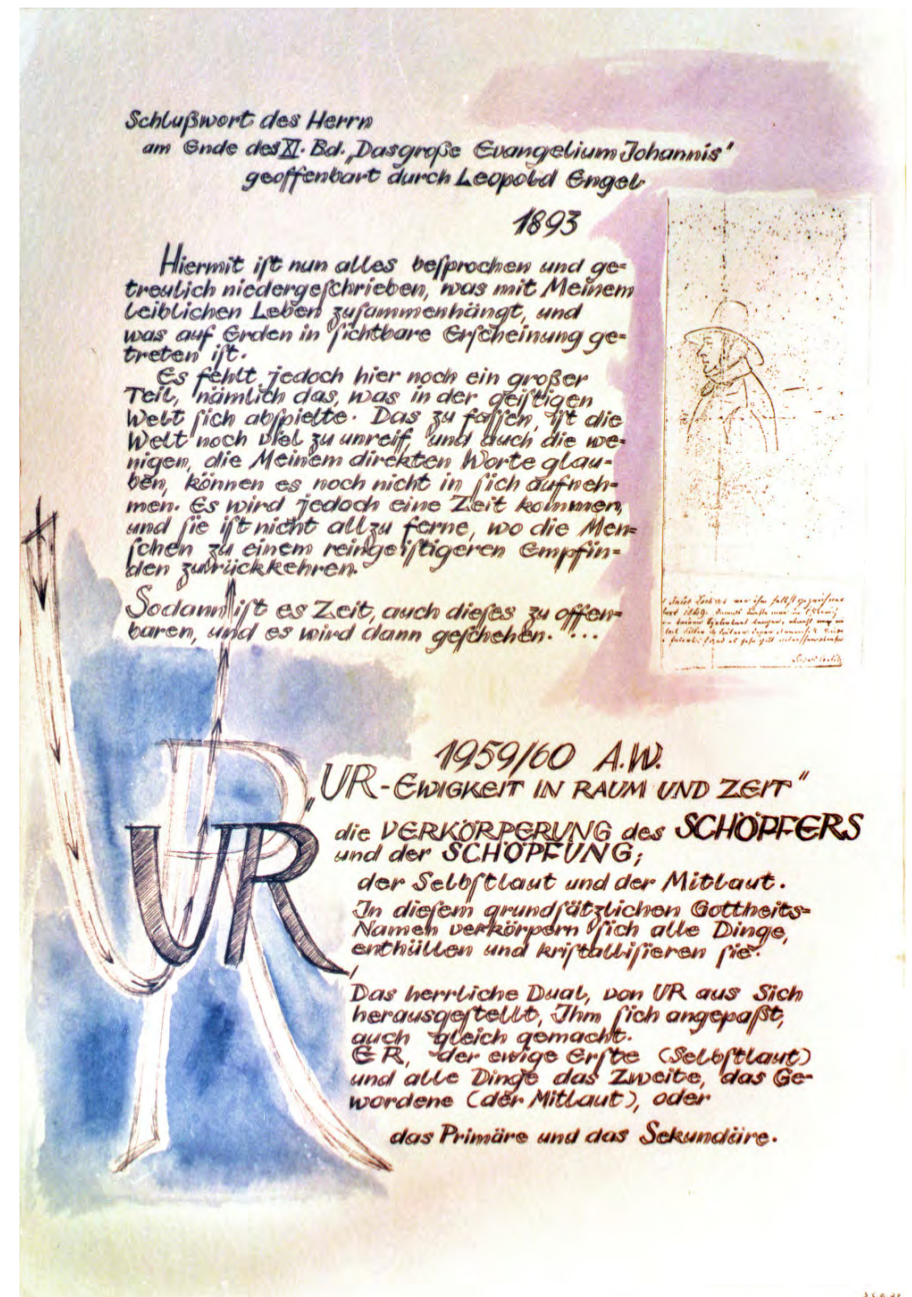 Schlußwort des Herrn
am Ende des XI. Bd. „Das große Evangelium Johannis"
geoffenbart durch Leopold Engel
1893
Hiermit iſt nun alles beſprochen und ge=
treulich niedergeſchrieben, was mit Meinem
leiblichen Leben zuſammenhängt, und
was auf Erden in ſichtbare Erſcheinung ge=
treten iſt.
Es fehlt jedoch hier noch ein großer
Teil, nämlich das, was in der geiſtigen
Welt ſich abſpielte. Das zu faſſen, iſt die
Welt noch viel zu unreif, und auch die we=
nigen, die Meinem direkten Worte glau=
ben, können es noch nicht in ſich aufneh=
men. Es wird jedoch eine Zeit kommen,
und ſie iſt nicht allzu ferne, wo die Men=
ſchen zu einem reingeiſtigeren Empfin=
den zurückkehren.
Sodann iſt es Zeit, auch dieſes zu offen=
baren, und es wird dann geſchehen. ...
1959/60 A.W.
"UR-EWIGKEIT IN RAUM UND ZEIT"
die VERKÖRPERUNG des SCHÖPFERS
und der SCHÖPFUNG;
der Selbſtlaut und der Mitlaut.
In dieſem grundſätzlichen Gottheits=
Namen verkörpern ſich alle Dinge,
enthüllen und kriſtalliſieren ſie.
Das herrliche Dual, von UR aus Sich
herausgeſtellt, Ihm ſich angepaßt,
auch gleich gemacht.
ER, der ewige Erſte (Selbſtlaut)
und alle Dinge das Zweite, das Ge=
wordene (der Mitlaut), oder
das Primäre und das Sekundäre.
UR
UR